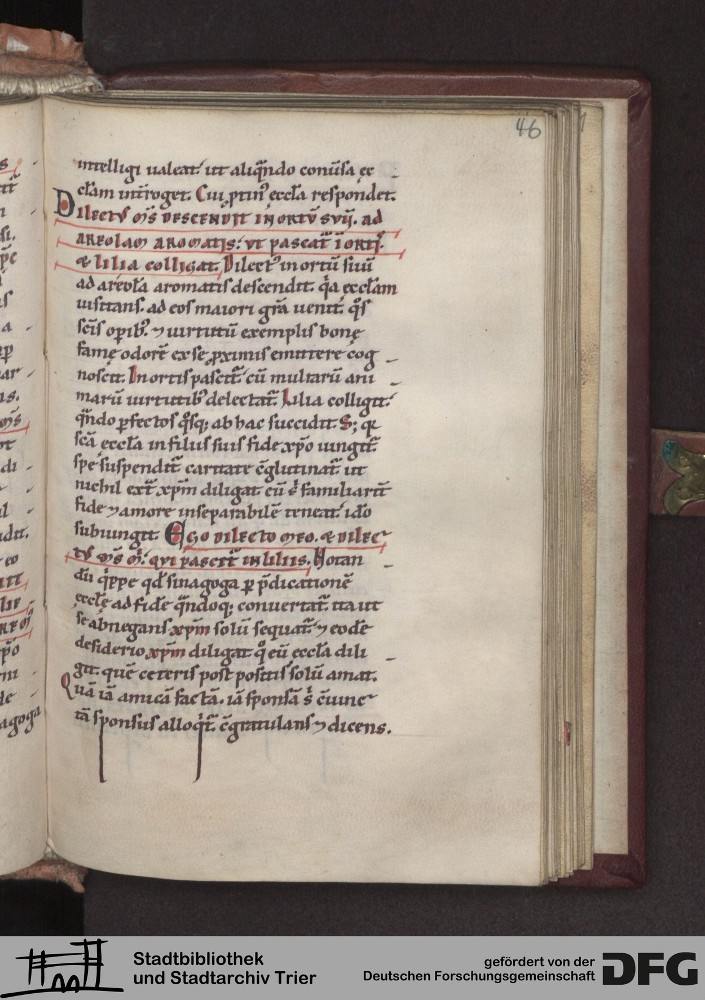 46
intelligi ualeat. ut aliqñdo conũsa ec
cl̄am int̄roget. Cui ꝓtin᷒ eccl̄a respondet.
Dilectus m̄s descendit in ortū suū. ad
areolam aromatis. ut pascat̄ ī ortis.
& lilia colligat. Dilect᷒ in ortū suū
ad areolā aromatis descendit. q̇a eccl̄am
uisitans. ad eos maiori gr̄a uenit. q̇s
sc̄is oꝑib᷒. ⁊ uirtutū exemplis bonę
famę odorē ex se ꝓximis emittere cog
noscit. In ortis pascit̄. cū multarū ani
marū uirtutib᷒ delectat̄. Lilia colligit.
q̄ndo ꝑfectos q̇sq; ab hac succidit. S; q̇
sc̄a eccl̄a in filiis suis fide xp̄o iungit̄.
spe suspendit̄. caritate c̄glutinat̄. ut
nichil ext̄ xp̄m diligat. cū s̄ familiarit̄
fide ⁊ amore inseparabilē teneat. idō
subiungit. Ego dilecto meo. & dilec
tus m̄s m̄. qui pascit̄ in liliis. Notan
dū q̇ppe qd̄ sinagoga ꝑ p̄dicationē
eccl̄ę ad fidē q̄ndoq; conuertat̄. ita ut
se abnegans xp̄m solū sequat̄. ⁊ eodē
desiderio xp̄m diligat. q̊ eū eccl̄a dili
git. quē ceteris post positis solū amat.
Quā iā amicā factā. iā sponsā s̄ c̄iunc
tā sponsus alloq̇t̄. c̄gratulans ⁊ dicens.
agoga
Stadtbibliothek
und Stadtarchiv Trier
gefördert von der
Deutschen Forschungsgemeinschaft
DFG